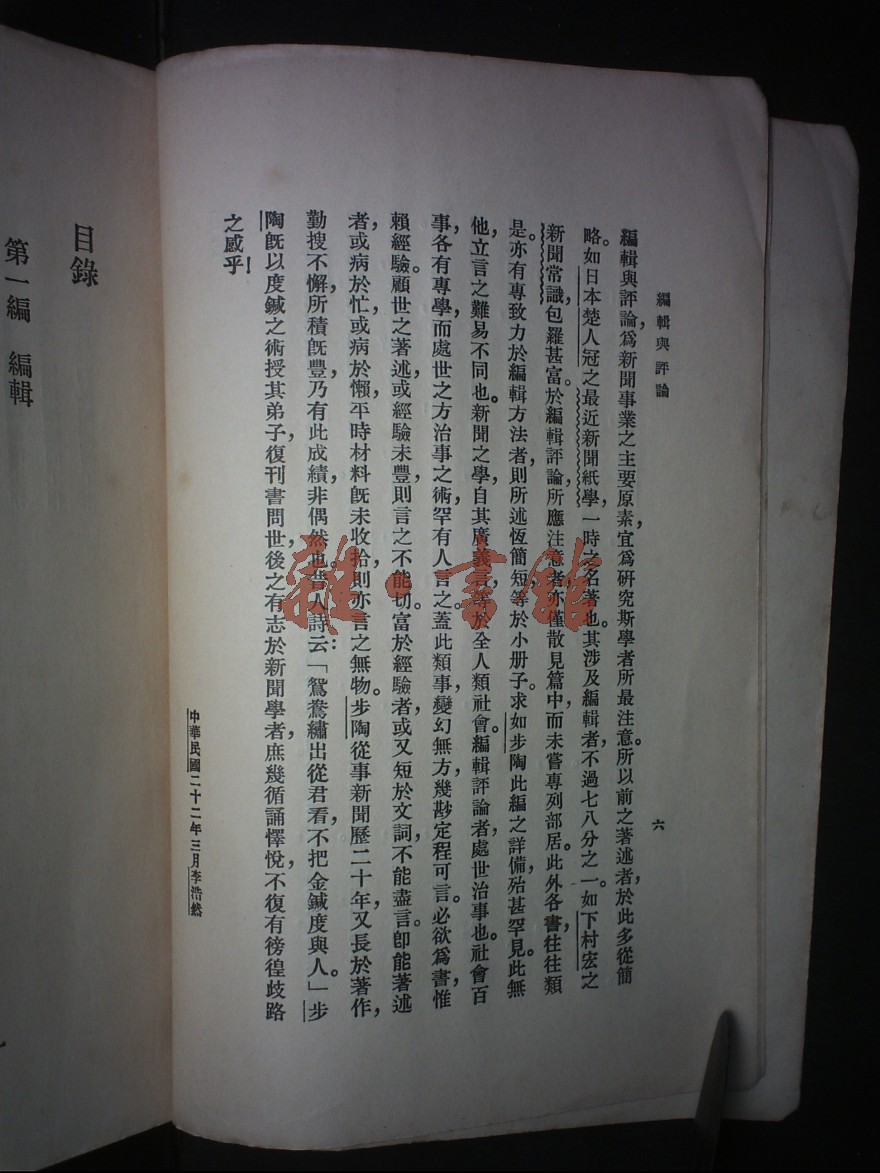 編輯與評論
六
編輯與評論，爲新聞事業之主要原素，宜爲硏究斯學者所最注意。所以前之著述者，於此多從簡
略。如日本楚人冠之最近新聞紙學，一時之名著也。其涉及編輯者，不過七八分之一。如下村宏之
新聞常識，包羅甚富。於編輯評論，所應注意者，亦僅散見篇中，而未嘗專列部居。此外各書，往往類
是。亦有專致力於編輯方法者，則所述恆簡短，等於小册子。求如步陶此編之詳備，殆甚罕見。此無
他，立言之難易不同也。新聞之學，自其廣義言，等於全人類社會。編輯評論者，處世治事也。社會百
事，各有專學，而處世之方，治事之術，罕有人言之。蓋此類事，變幻無方，幾尠定程可言。必欲爲書，惟
賴經驗。顧世之著述，或經驗未豐，則言之不能切。富於經驗者，或又短於文詞，不能盡言。卽能著述
者，或病於忙，或病於懶，平時材料旣未收拾，則亦言之無物。步陶從事新聞，歷二十年，又長於著作，
勤搜不懈，所積旣豐，乃有此成績，非偶然也。昔人詩云：「鴛鴦繡出從君看，不把金鍼度與人。」步
陶旣以度鍼之術，授其弟子，復刊書問世，後之有志於新聞學者，庶幾循誦懌悅，不復有徬徨歧路
之感乎！
中華民國二十二年三月李浩然
目錄
第一編 編輯
雜·書館